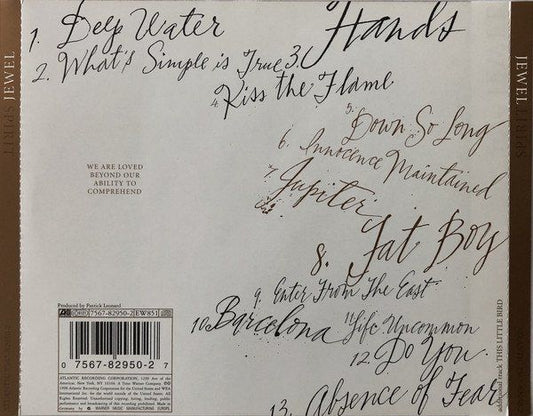 1. Deep Water
2. What's Simple is True
3. Hands
4. Kiss the Flame
5. Down So Long
6. Innocence Maintained
7. Jupiter
8. Fat Boy
9. Enter From The East
10. Barcelona
11. Life Uncommon
12. Do You
13. Absence of Fear
WE ARE LOVED
BEYOND OUR
ABILITY TO
COMPREHEND
Produced by Patrick Leonard
7567-82950-2 EW851
0 7567-82950-2 7
ATLANTIC RECORDING CORPORATION, 1290 Ave of the
Americas, New York, NY 10104 A Time Warner Company
1998 Atlantic Recording Corporation for the United States and WEA
International Inc. for the world outside of the United States. All
Rights Reserved. Unauthorized copying, hiring, lending, public
performance and broadcasting of this recording prohibited. Made in
Germany by WARNER MUSIC MANUFACTURING EUROPE.
JEWEL SPIRIT
JEWEL SPIRIT
additional track THIS LITTLE BIRD